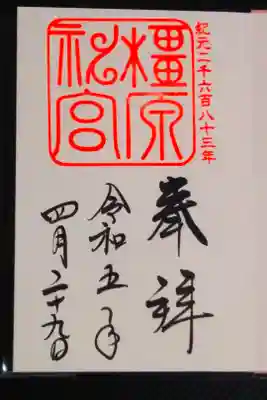 紀元二千六百八十三年
橿原
神宮
奉拝
令和五年
四月二十九日